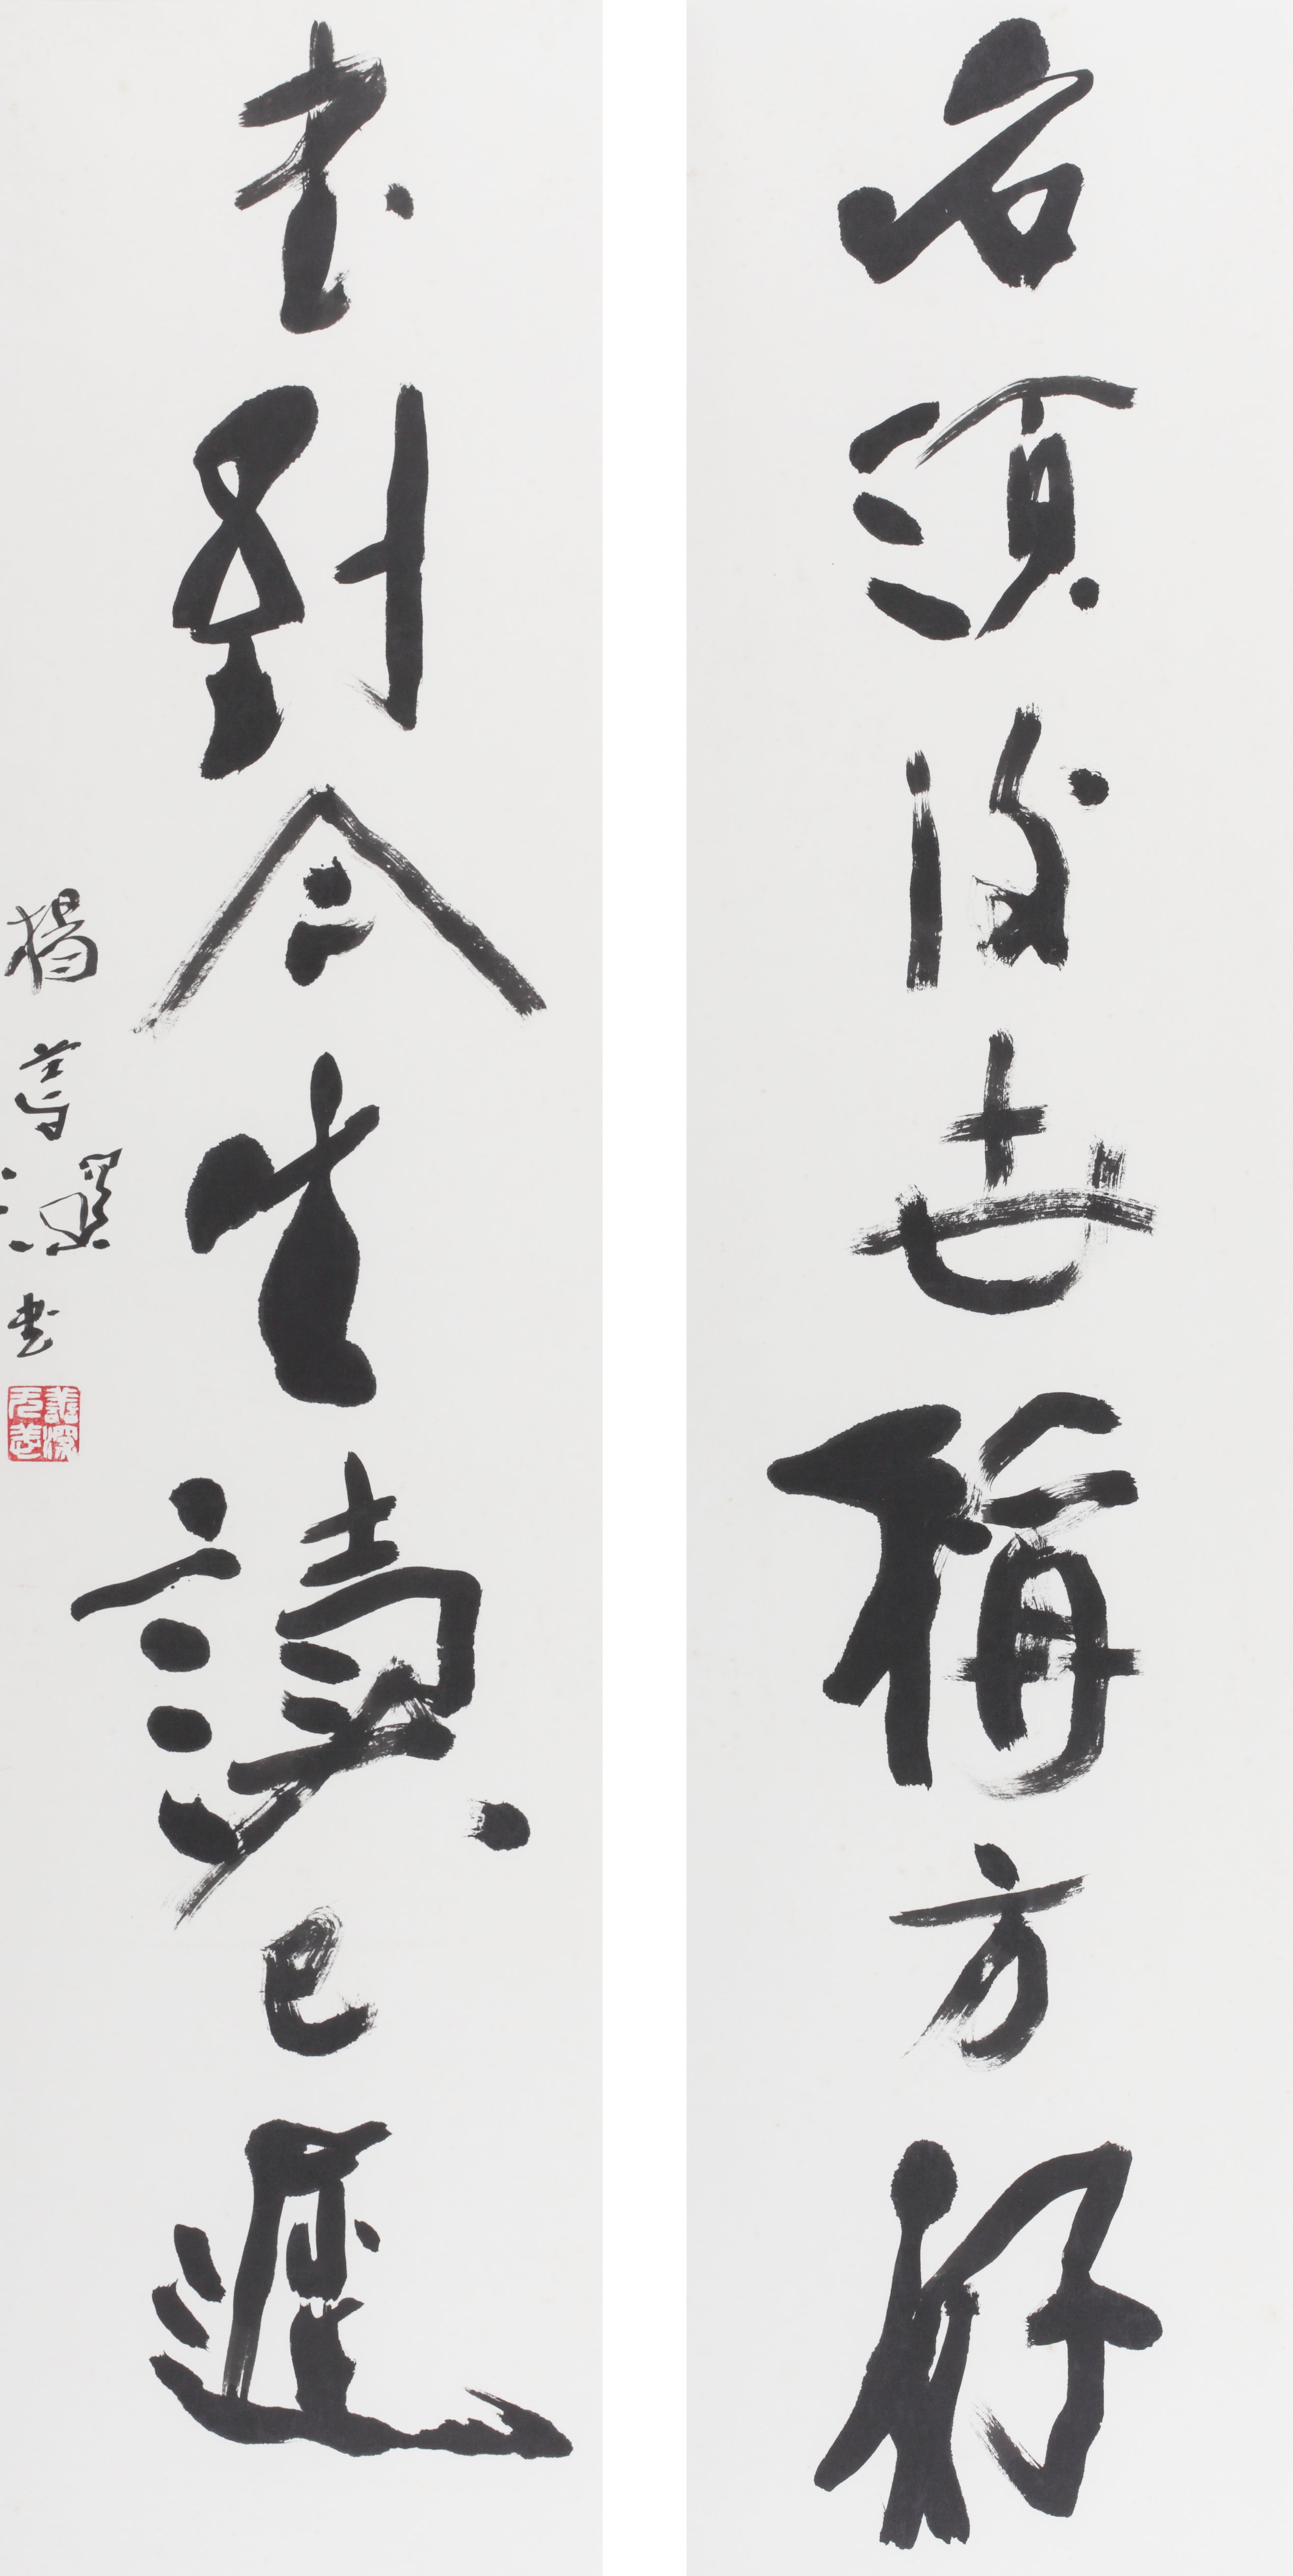 名須後世稱方好
書到今生讀已遲
楊善深書
善深无恙